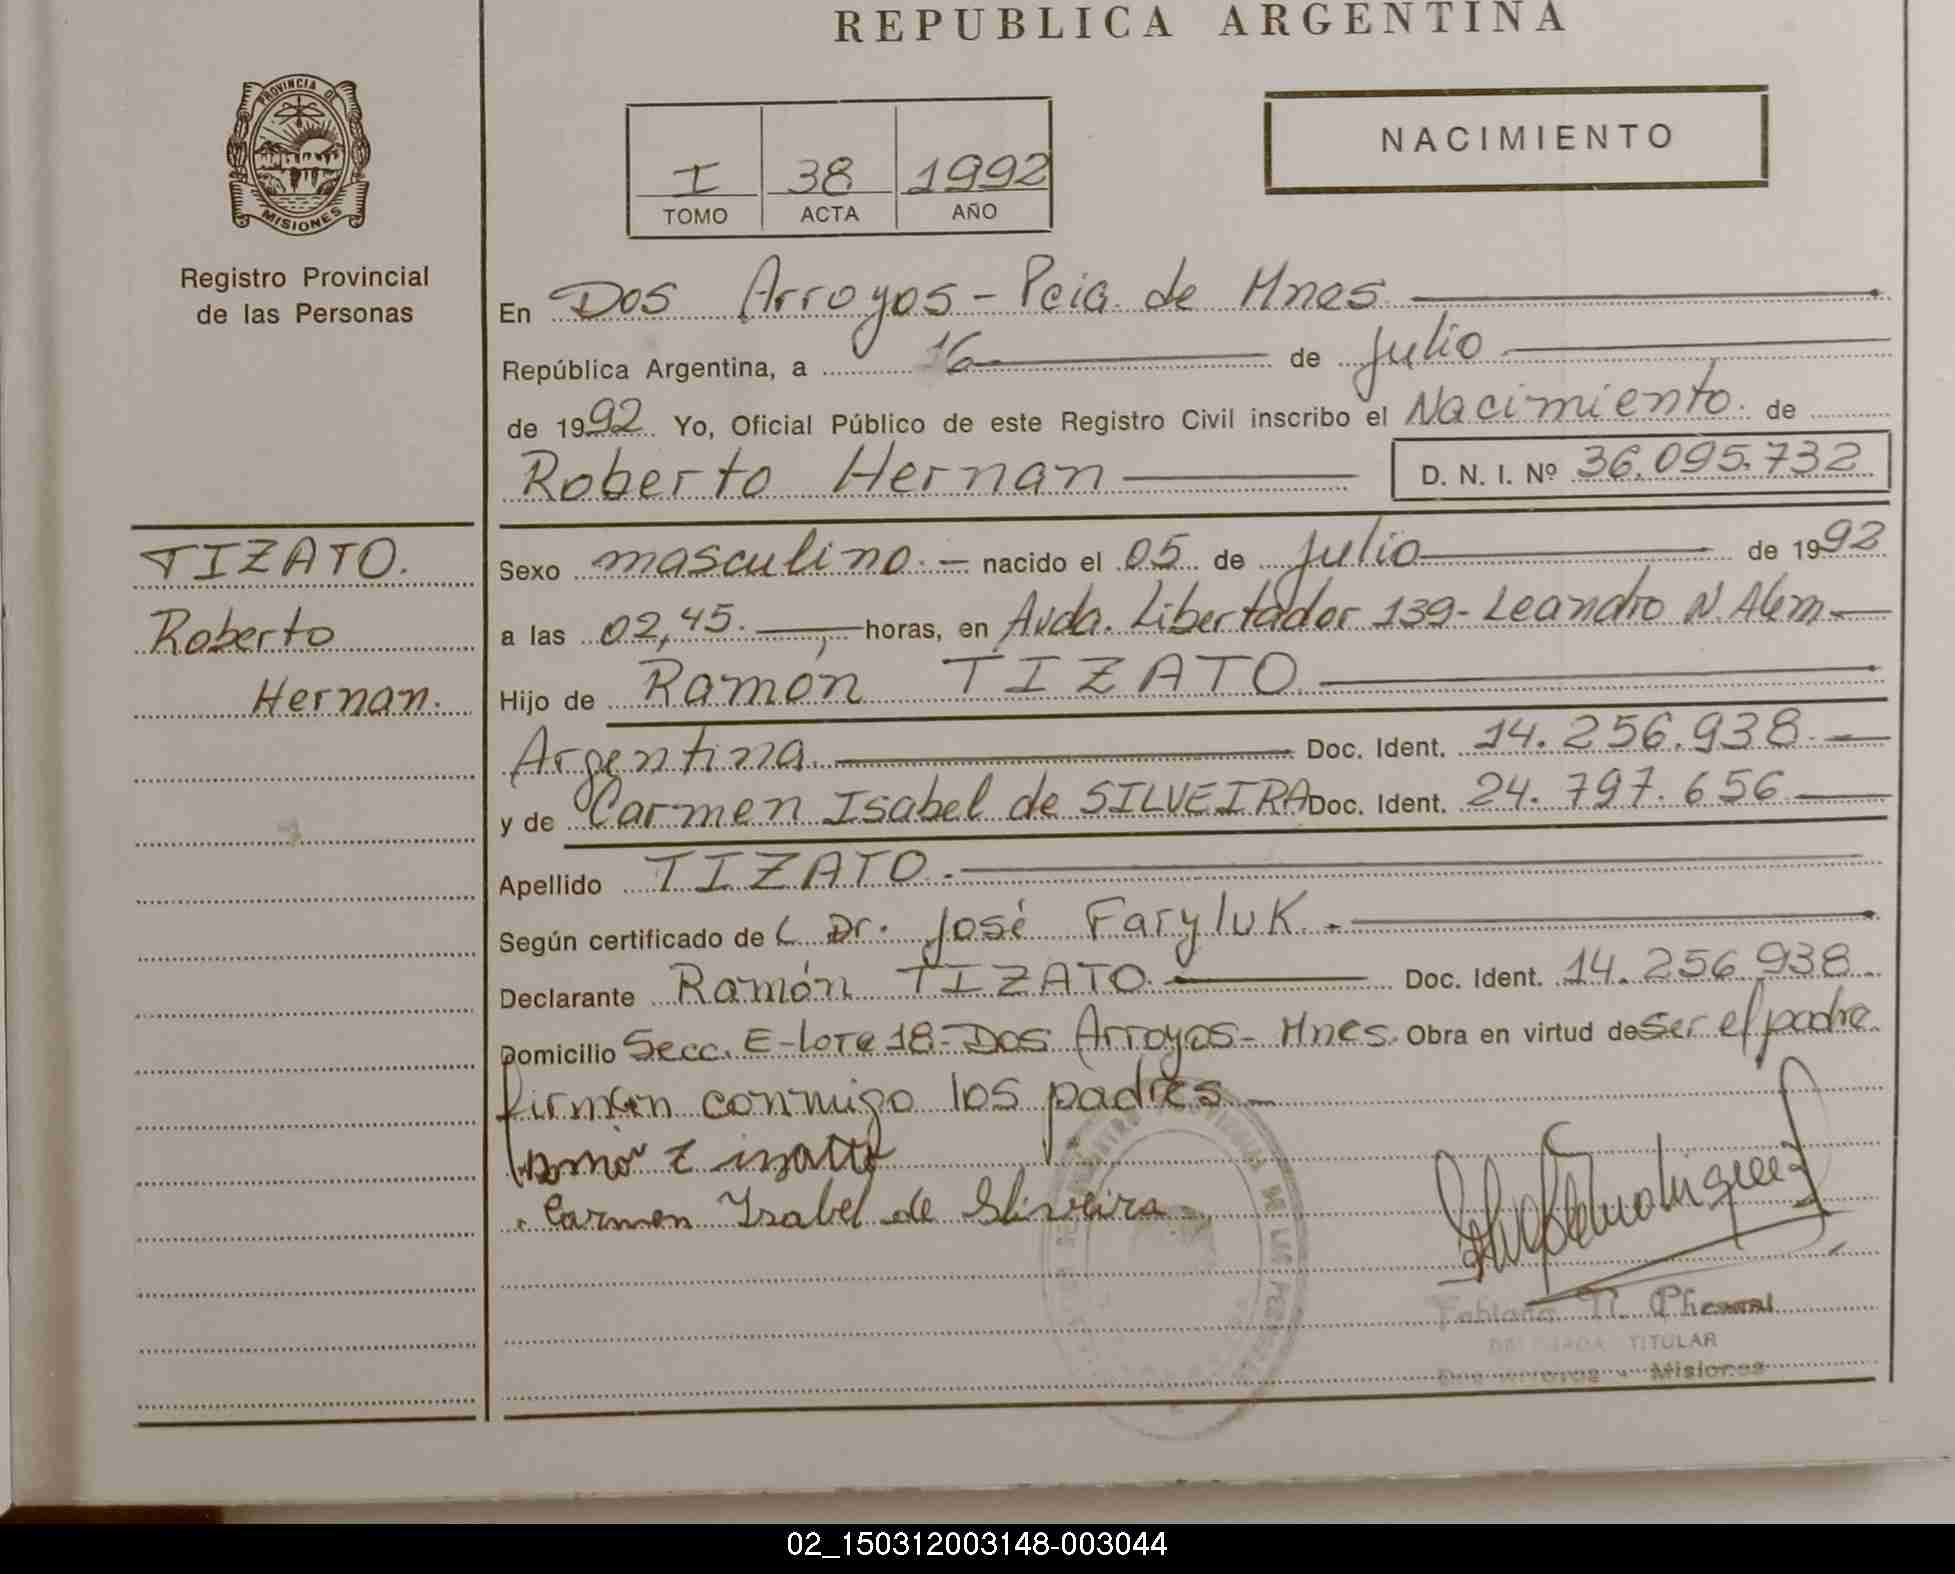 REPUBLICA ARGENTINA
PROVINCIA DE
MISIONES
Registro Provincial
de las Personas
NACIMIENTO
I 38 1992
TOMO ACTA AÑO
En Dos Arroyos - Pcia. de Mnes.
República Argentina, a 16 de Julio
de 1992. Yo, Oficial Público de este Registro Civil inscribo el Nacimiento. de
Roberto Hernan D. N. I. Nº 36.095.732
TIZATO.
Roberto
Hernan.
Sexo masculino. - nacido el 05 de Julio de 1992
a las 02,45. horas, en Avda. Libertador 139- Leandro N. Alem -
Hijo de Ramón TIZATO
Argentina. Doc. Ident. 14.256.938 -
y de Carmen Isabel de SILVEIRA Doc. Ident. 24.797.656
Apellido TIZATO.-
Según certificado de L Dr. José Faryluk.-
Declarante Ramón TIZATO. Doc. Ident. 14.256.938
Domicilio Secc. E-Lote 18- Dos Arroyos- Mnes. Obra en virtud de ser el padre
firman conmigo los padres. -
Carmen Ysabel de Slivеira
TITULAR
Misiones
02_150312003148-003044